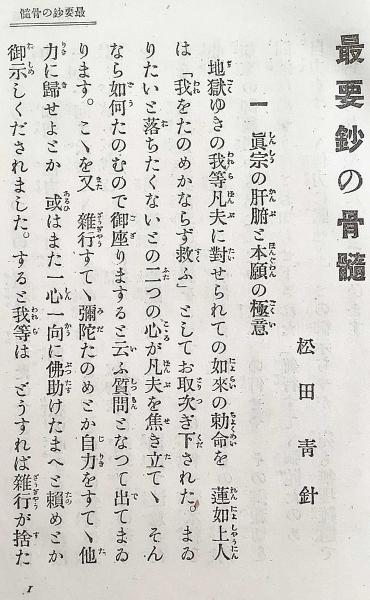 最要鈔の骨髓
最要鈔の骨髓
松田靑針
一 眞宗の肝腑と本願の極意
地獄ゆきの我等凡夫に對せられての如來の勅命を 蓮如上人
は「我をたのめかならず救ふ」としてお取次ぎ下された。まゐ
りたいと落ちたくないとの二つの心が凡夫を焦き立てゝ そん
なら如何たのむので御座りますると云ふ質問となつて出てまゐ
ります。こゝを又 雜行すてゝ彌陀たのめとか自力をすてゝ他
力に歸せよとか 或はまた一心一向に佛助けたまへと賴めとか
御示しくだされました。すると我等は どうすれば雜行が捨た
1